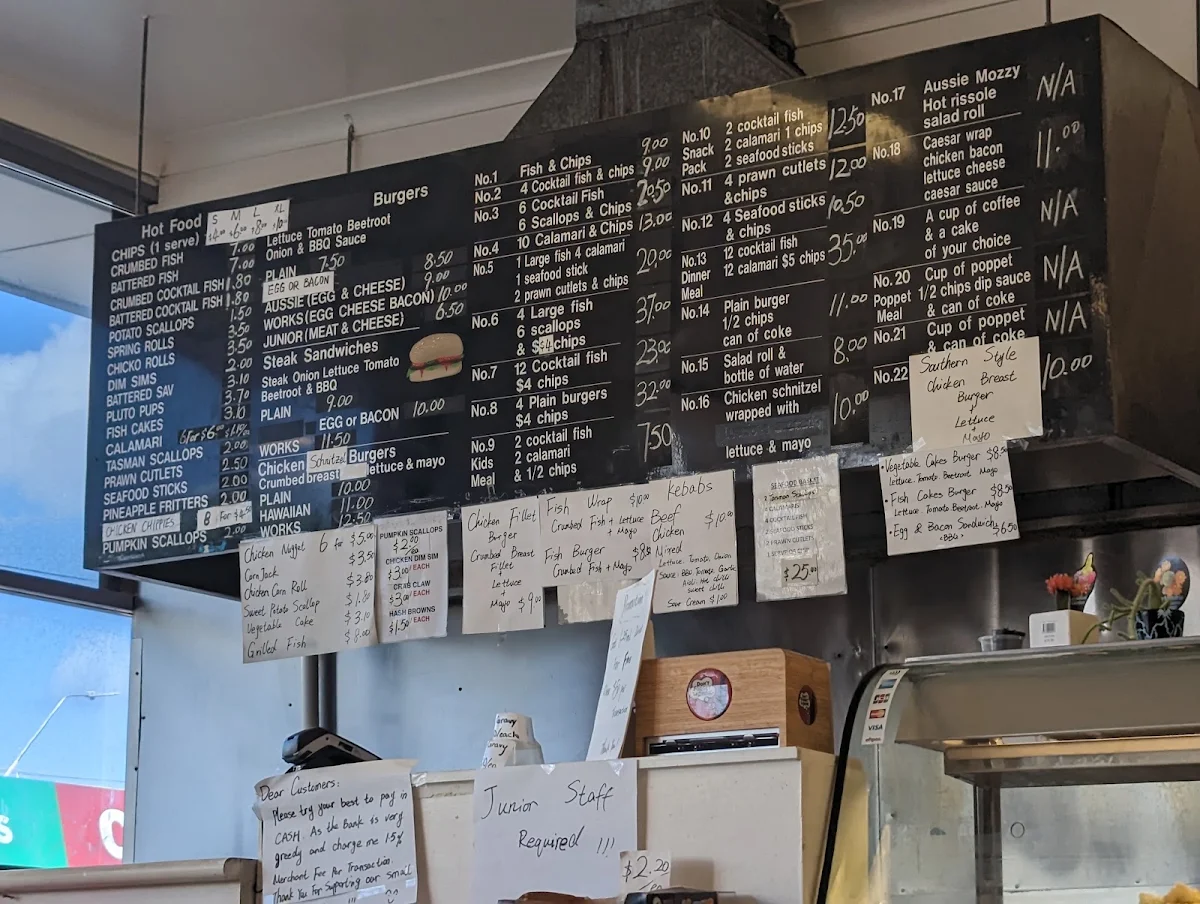 Hot Food
S M L XL
CHIPS (1 serve)
CRUMBED FISH 7.00
BATTERED FISH 7.00
CRUMBED COCKTAIL FISH 1.80
BATTERED COCKTAIL FISH 1.80
POTATO SCALLOPS 1.50
SPRING ROLLS 3.50
CHICKO ROLLS 3.50
DIM SIMS 2.00
BATTERED SAV 3.10
PLUTO PUPS 3.70
FISH CAKES 3.10
CALAMARI 6 for $6.00
TASMAN SCALLOPS 2.00
PRAWN CUTLETS 2.50
SEAFOOD STICKS 2.00
PINEAPPLE FRITTERS 2.00
CHICKEN CHIPPIES 8 For
PUMPKIN SCALLOPS 2.00
Burgers
Lettuce Tomato Beetroot
Onion & BBQ Sauce
PLAIN 7.50
EGG OR BACON 8.50
AUSSIE (EGG & CHEESE) 9.00
WORKS (EGG CHEESE BACON) 10.00
JUNIOR (MEAT & CHEESE) 6.50
Steak Sandwiches
Steak Onion Lettuce Tomato
Beetroot & BBQ
PLAIN 9.00
EGG or BACON 10.00
WORKS 11.50
Chicken Schnitzel Burgers
Crumbed breast lettuce & mayo
PLAIN 10.00
HAWAIIAN 11.00
WORKS 12.50
No.1 Fish & Chips 9.00
No.2 4 Cocktail fish & chips 9.00
No.3 6 Cocktail Fish
6 Scallops & Chips 20.50
No.4 10 Calamari & Chips 13.00
No.5 1 Large fish 4 calamari
1 seafood stick
2 prawn cutlets & chips 20.00
No.6 4 Large fish
6 scallops
& $4 chips 37.00
No.7 12 Cocktail fish
$4 chips 23.00
No.8 4 Plain burgers
$4 chips 32.00
No.9 2 cocktail fish
Kids 2 calamari
Meal & 1/2 chips 7.50
No.10 2 cocktail fish
Snack 2 calamari 1 chips
Pack 2 seafood sticks 12.50
No.11 4 prawn cutlets
&chips 12.00
No.12 4 Seafood sticks
& chips 10.50
No.13 12 cocktail fish
Dinner 12 calamari $5 chips
Meal 35.00
No.14 Plain burger
1/2 chips
can of coke 11.00
No.15 Salad roll &
bottle of water 8.00
No.16 Chicken schnitzel
wrapped with
lettuce & mayo 10.00
No.17 Aussie Mozzy
Hot rissole
salad roll N/A
No.18 Caesar wrap
chicken bacon
lettuce cheese
caesar sauce 11.00
No.19 A cup of coffee
& a cake
of your choice N/A
No.20 Cup of poppet
Poppet 1/2 chips dip sauce
Meal & can of coke N/A
No.21 Cup of poppet
& can of coke N/A
No.22 Southern Style
Chicken Breast
Burger
+
Lettuce
+
Mayo 10.00
Chicken Nugget 6 for $5.00
Corn Jack $3.50
Chicken Corn Roll $3.80
Sweet Potato Scallop $1.80
Vegetable Cake $3.10
Grilled Fish $8.00
PUMPKIN SCALLOPS
$2.00
CHICKEN DIM SIM
$3.00/EACH
CRAB CLAW
$3.00/EACH
HASH BROWNS
$1.50/EACH
Chicken Fillet
Burger
Crumbed Breast
Fillet
Lettuce
+
Mayo $9.00
Fish Wrap $10.00
Crumbed Fish + Lettuce
+ Mayo
Fish Burger $8.50
Crumbed Fish + Mayo
Kebabs
Beef
Chicken $10.00
Mixed
Lettuce, Tomato, Onion
Sauce: BBQ, Tomato, Garlic
sweet chilli
Sour Cream $1.00
SEAFOOD BASKET
$25.00
• Vegetable Cakes Burger $8.50
Lettuce, Tomato, Beetroot, Mayo
• Fish Cakes Burger $8.50
Lettuce, Tomato, Beetroot, Mayo
• Egg & Bacon Sandwich $6.50
(+BBQ)
Gravy
Dear Customers:
Please try your best to pay in
CASH. As the Bank is very
greedy and charge me 1.5%
Merchant Fee Per Transaction.
Thank You For Supporting our small
Junior Staff
Required !!!
$2.20
VISA